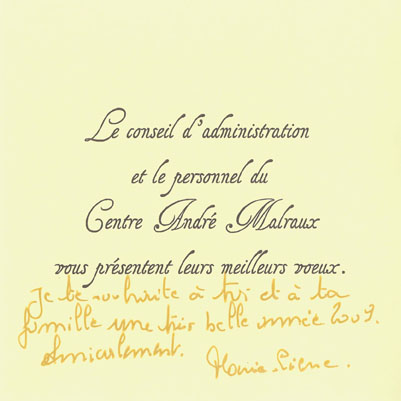 Le conseil d'administration
et le personnel du
Centre André Malraux
vous présentent leurs meilleurs voeux.
Je te souhaite à toi et à ta
famille une très belle année 2009.
Amicalement. Marie-Pierre.